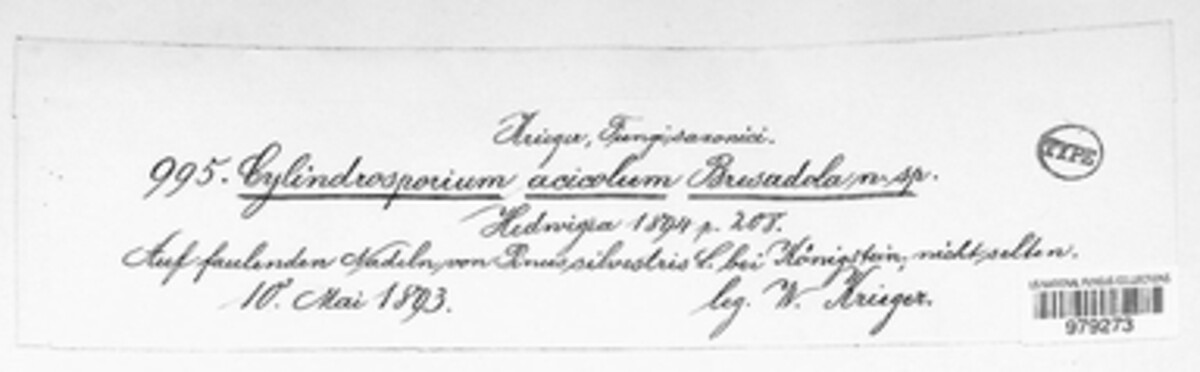 Krieger, Fungi saxonici.
TYPE
995. Cylindrosporium acicolum Bresadola n. sp.
Hedwigia 1894 p. 208.
Auf faulenden Nadeln von Pinus silvestris L. bei Königstein, nicht selten.
10. Mai 1893.
leg. W. Krieger.
US NATIONAL FUNGUS COLLECTIONS
979273